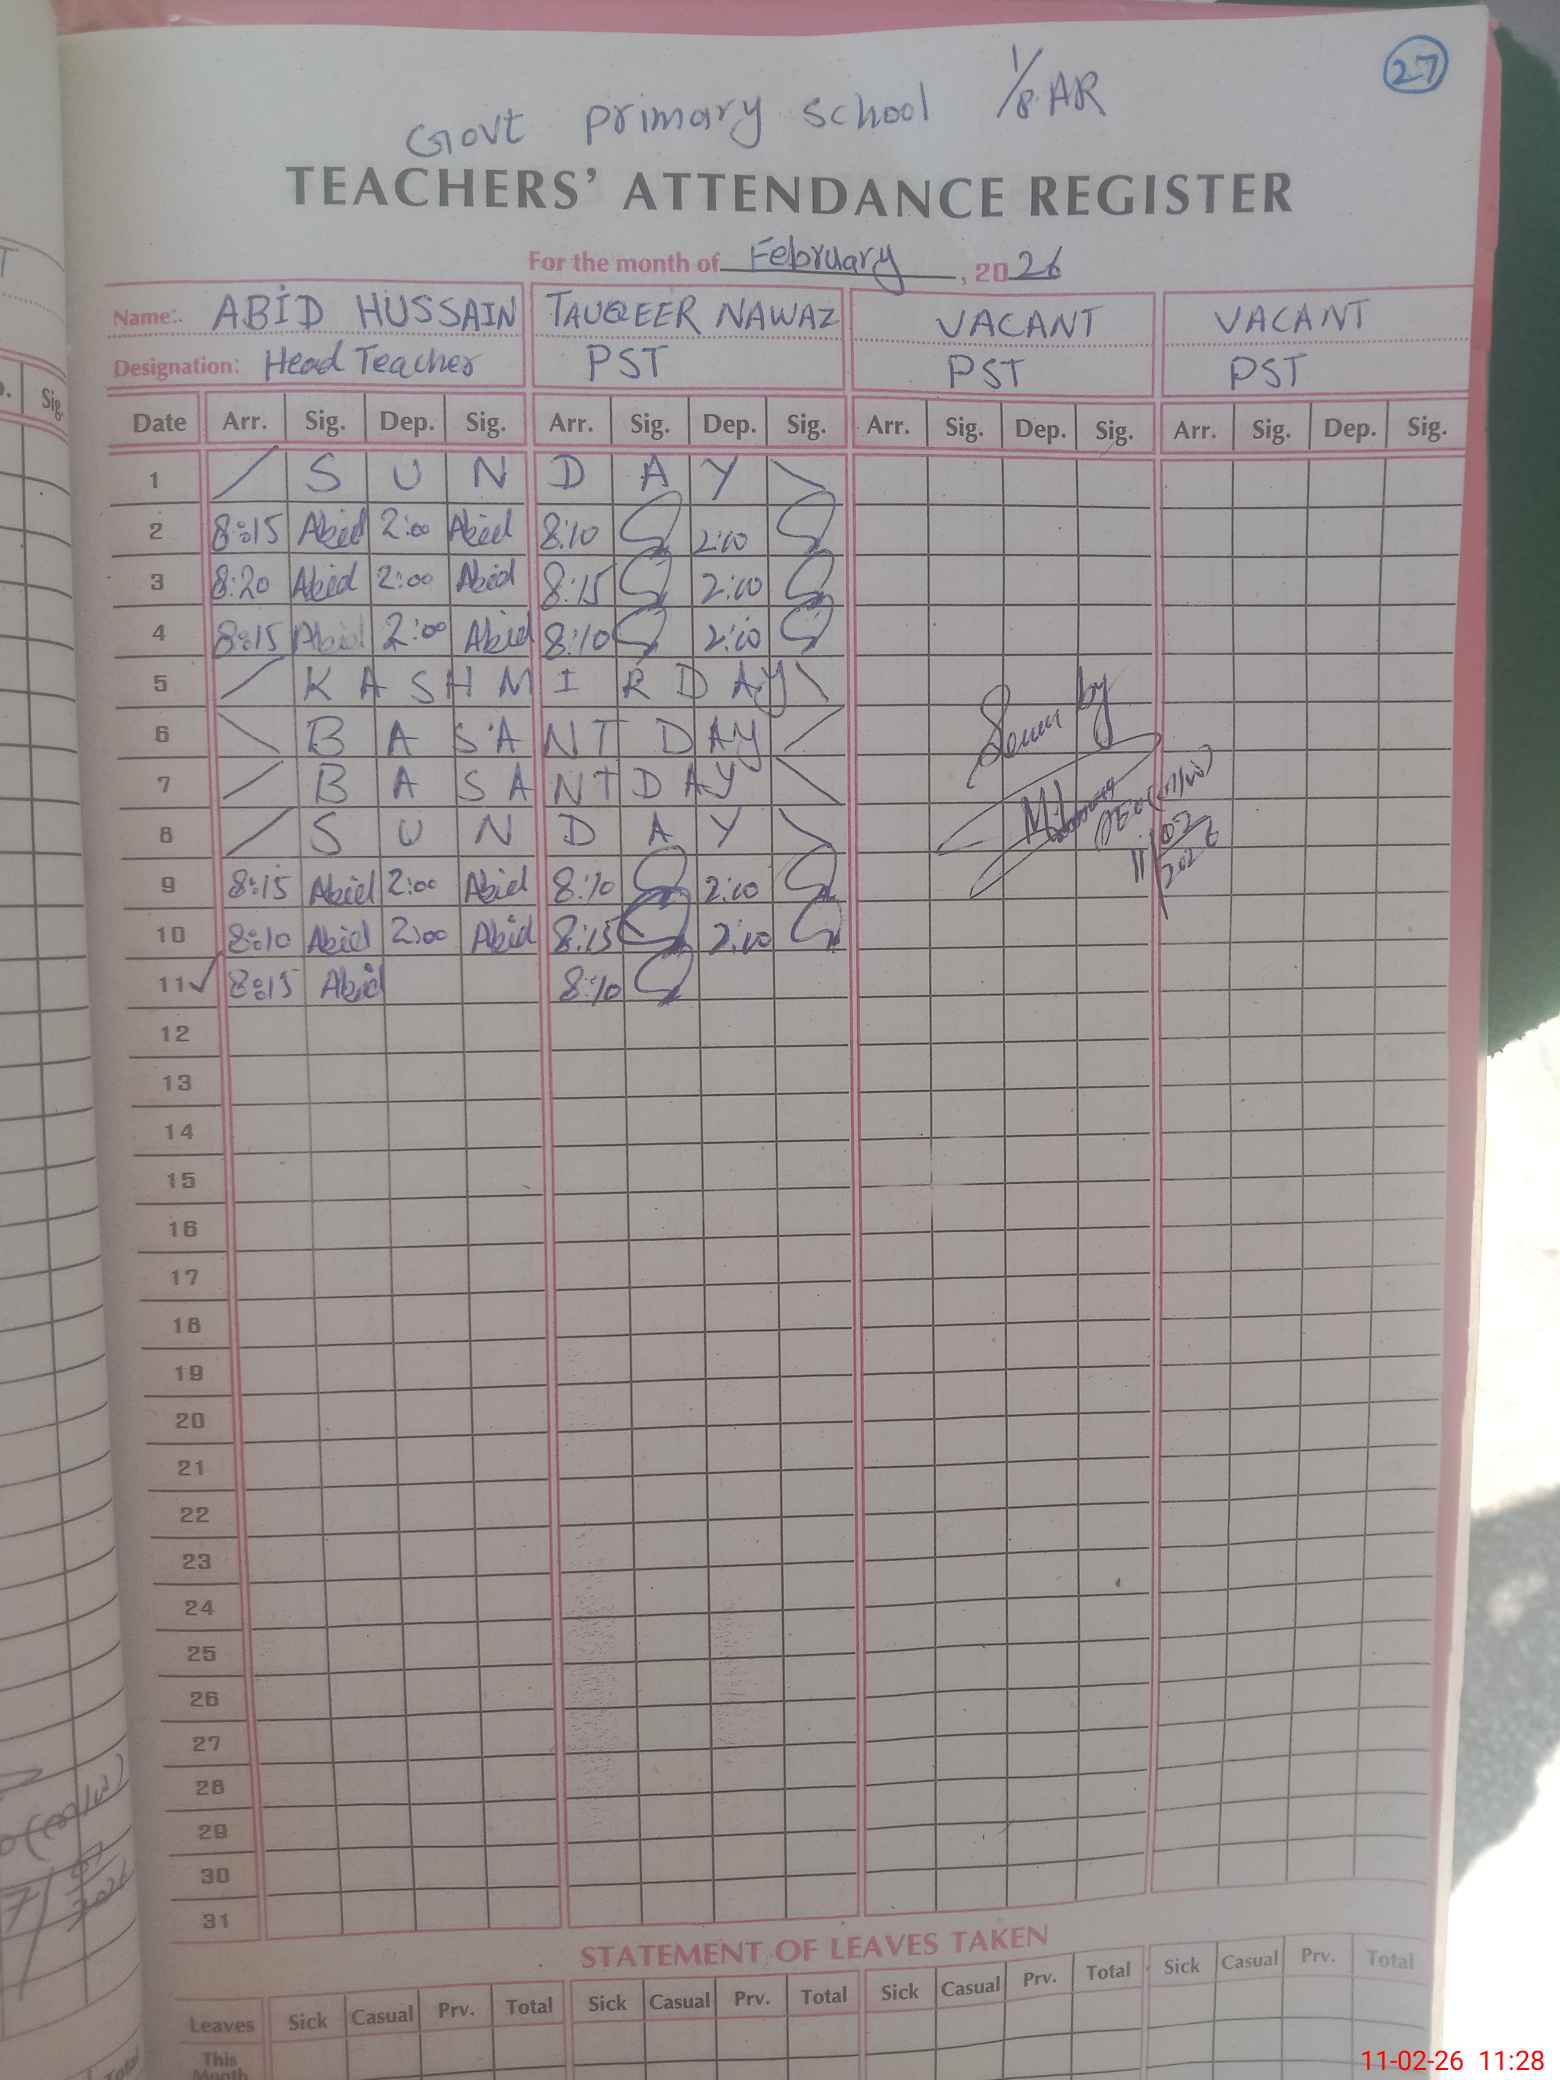 27
Govt primary school 1/8.AR
TEACHERS' ATTENDANCE REGISTER
For the month of February, 2026
Name: ABID HUSSAIN TAUQEER NAWAZ VACANT VACANT
Designation: Head Teacher PST PST PST
Date Arr. Sig. Dep. Sig. Arr. Sig. Dep. Sig. Arr. Sig. Dep. Sig. Arr. Sig. Dep. Sig.
1 S U N D A Y
2 8:15 Abid 2:00 Abid 8:10 2:00
3 8:20 Abid 2:00 Abid 8:15 2:00
4 8:15 Abid 2:00 Abid 8:10 2:00
5 K A S H M I R D A Y
6 B A S A N T D A Y
7 B A S A N T D A Y
8 S U N D A Y
9 8:15 Abid 2:00 Abid 8:10 2:00
10 8:10 Abid 2:00 Abid 8:15 2:00
11 8:15 Abid 8:10
Seen by
11/02/2026
12
13
14
15
16
17
18
19
20
21
22
23
24
25
26
27
28
29
30
31
STATEMENT OF LEAVES TAKEN
Leaves Sick Casual Prv. Total Sick Casual Prv. Total Sick Casual Prv. Total Sick Casual Prv. Total
This
Month
11-02-26 11:28